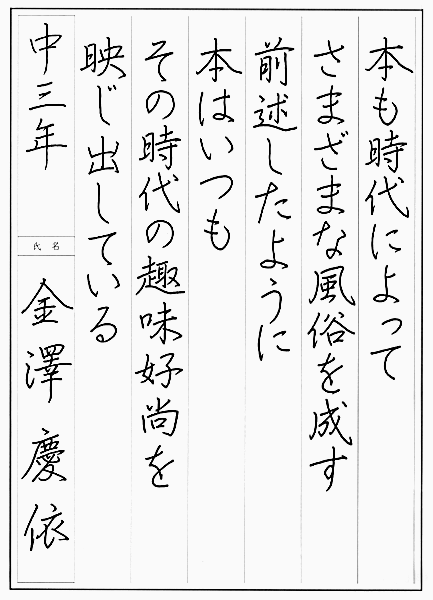 本も時代によって
さまざまな風俗を成す
前述したように
本はいつも
その時代の趣味好尚を
映じ出している
中三年
氏名
金澤慶依